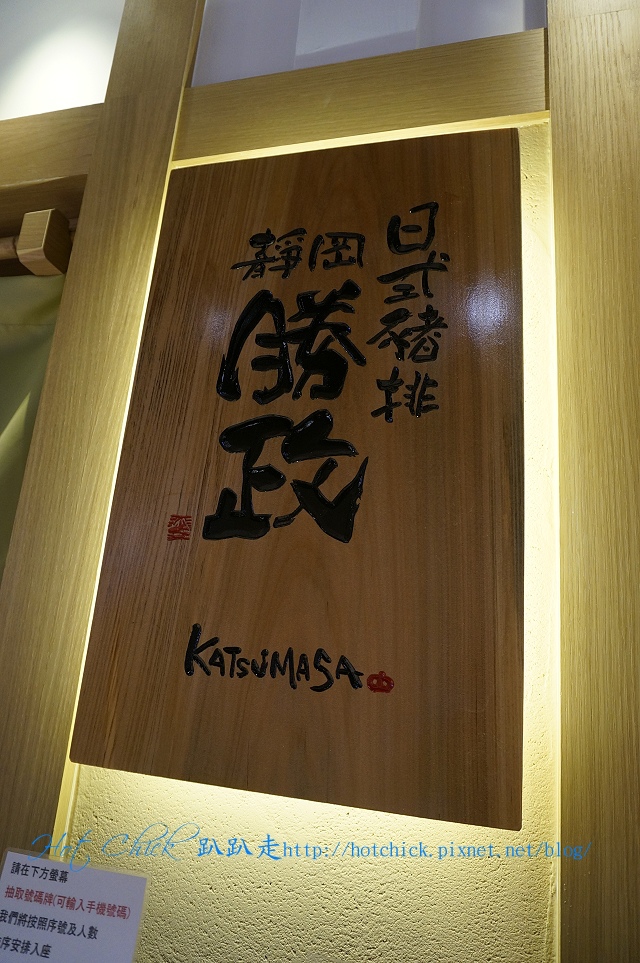 日式豬排
靜岡
勝政
KATSUMASA
Hot Chick 趴趴走http://hotchick.pixnet.net/blog/
請在下方螢幕
抽取號碼牌(可輸入手機號碼)
我們將按照序號及人數
序安排入座